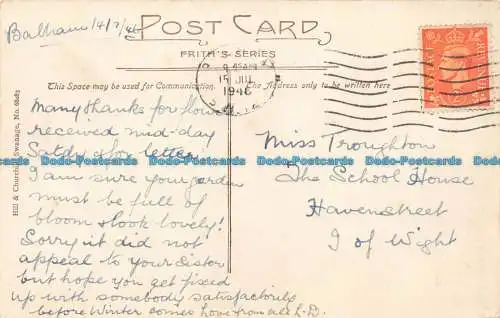 Balham 14/7/46
POST CARD
FRITH'S SERIES
This Space may be used for Communication.
The Address only to be written here
9.45AM
15 JUL
1946
Hill & Churchill, Swanage, No.
Many thanks for flowers
received mid-day
Satdy & for letter
I am sure your garden
must be full of
bloom & look lovely!
Sorry it did not
appeal to your sister
but hope you get fixed
up with somebody satisfactorily
before Winter comes Love from all L.D.
Miss Troughton
The School House
Havenstreet
I of Wight